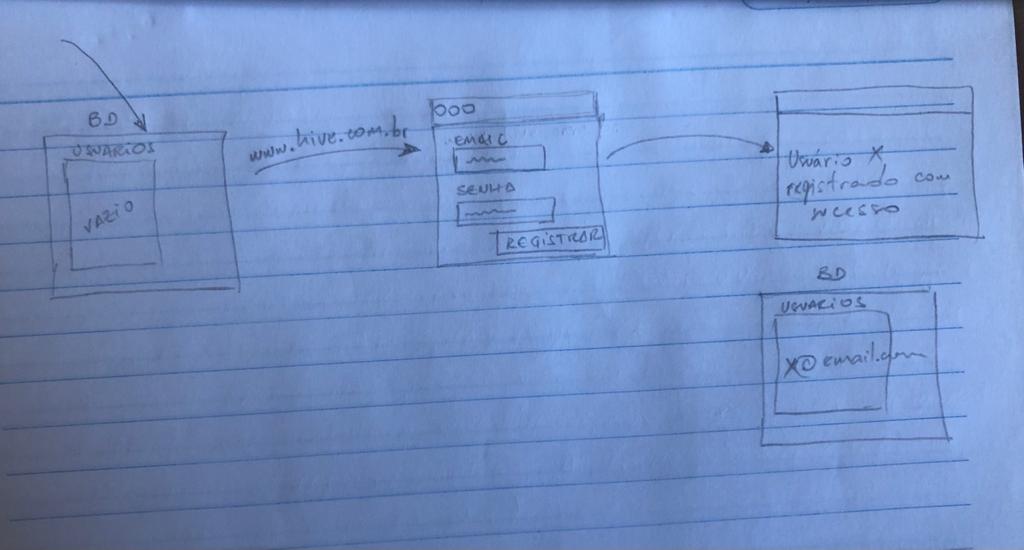 BD
USUARIOS
VAZIO
www.hive.com.br
EMAIL
SENHA
REGISTRAR
Usuário X
registrado com
sucesso
BD
USUARIOS
X@email.com